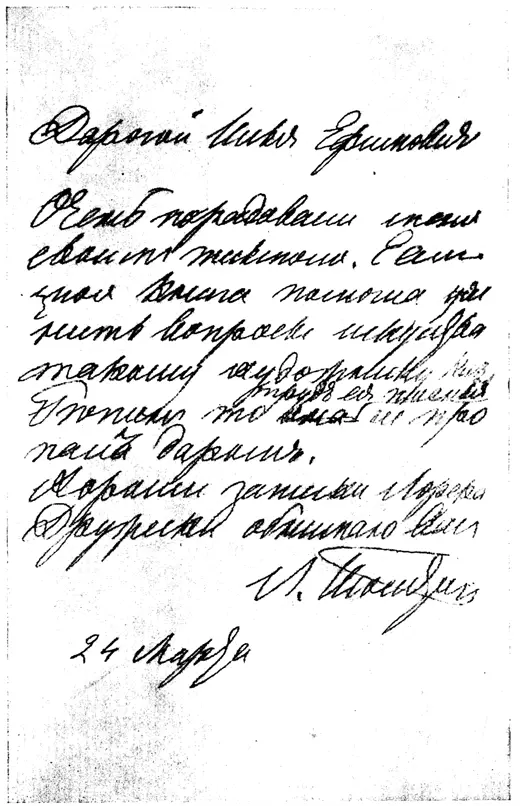 Дорогой Илья Ефимович
Очень порадовали меня
своимъ письмомъ. Если
моя книга помогла уяс
нить вопросы искуства
такому художнику какъ
трудъ ея писания
то не про
палъ даромъ.
Дружески обнимаю Васъ
Л. Толстой
24 Марта